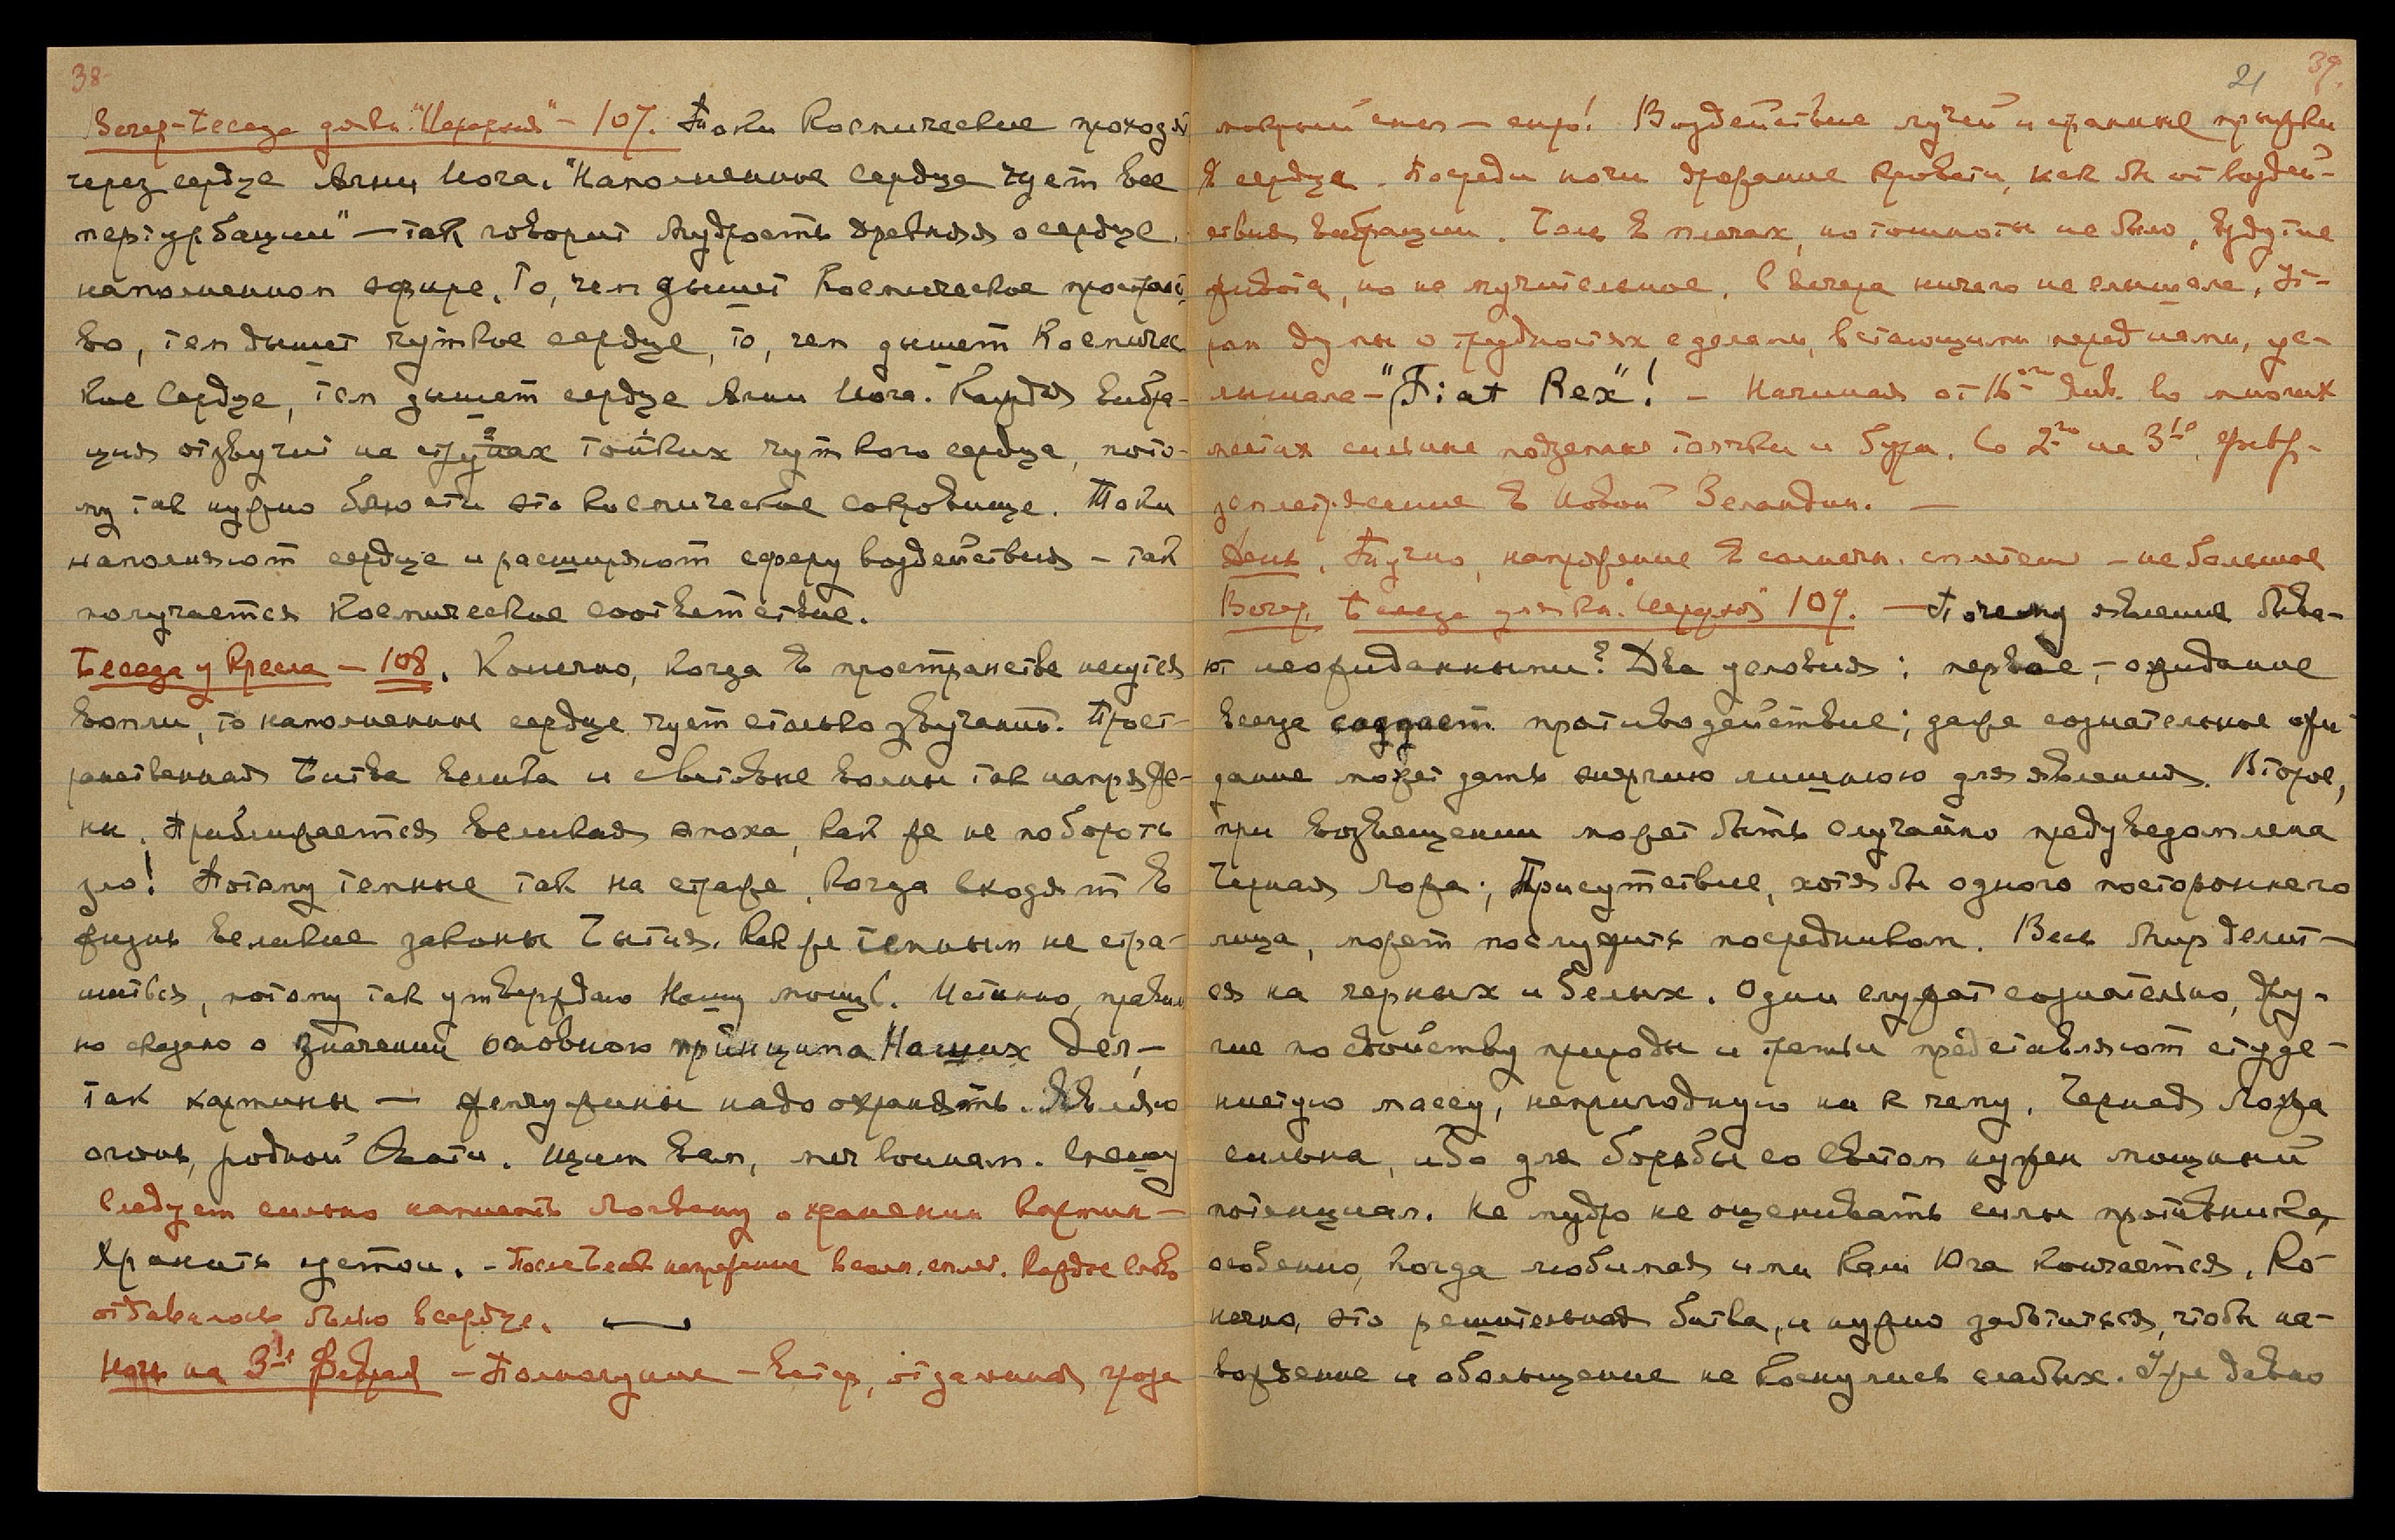 38
Вечер - Беседа для кн. "Иерархия" - 107. Токи Космические проходят
через сердце Агни Йога. "Наполненное сердце чует все
пертурбации" - так говорит Мудрость древняя о сердце,
наполненном эфире. То, чем дышит Космическое простран,
во, тем дышит чуткое сердце, то, чем дышет Космичес
кое Сердце, тем дышет сердце Агни Йога. Каждая вибра-
ция отзвучит на струнах тонких чуткого сердца, пото-
му так нужно блюсти это космическое сокровище. Токи
наполняют сердце и расширяют сферу воздействия - так
получается Космическое соответствие.
Беседа у Кресла - 108. Конечно, когда в пространстве несутся
вопли, то наполненное сердце чует столько звучаний. Прост-
ранственная Битва велика и световые волны так напряже-
ны. Приближается великая эпоха, как же не побороть
зло! Потому темные так на страже, когда входят в
жизнь великие законы Бытия. Как же темным не стра-
шиться, потому так утверждаю Нашу мощь. Истинно, правиль
но сказано о значении основного принципа Наших Дел, -
так картины - жемчужины надо охранять. Являю
огонь, родной Свати. Щит вам, меч воинам. Спешу
Следует сильно написать Логвану о хранении картин -
Хранить щитом. - После Бесед напряжение в солн. сплет. Каждое слово
отдавалось больно в сердце. —
Ночь на 3ье Февраля - Полнолуние - Ветер, отдаленная гроза
21 39.
мокрый снег - сыро! Воздействие лучей и странные прыжки
в сердце. Посреди ночи дрожание кровати, как бы от воздей-
ствия вибрации. Боль в плечах, но тошноты не было, вздутие
живота, но не мучительное. С вечера ничего не слышала. Ут-
ром думы о трудностях с делами, встающими перед нами, ус-
лышала - "Fiat Rex"! - Начиная от 16го Янв. во многих
местах сильные подземные толчки и бури. Со 2го на 3ье Февр. -
землетрясение в Новой Зеландии. —
День. Тучно, напряжение в солнечн. сплетен - не большое
Вечер. Беседа для кн. "Иерархия" 109. - Почему явления быва-
ют неожиданными? Два условия: первое, - ожидание
всегда создает противодействие; даже сознательное ожи
дание может дать энергию лишнюю для явления. Второе,
при возвещении может быть случайно предуведомлена
Черная Ложа; Присутствие, хотя бы одного постороннего
лица, может послужить посредником. Весь Мир делит-
ся на черных и белых. Одни служат сознательно, дру-
гие по свойству природы и третьи представляют студе-
нистую массу, непригодную ни к чему. Черная Ложа
сильна, ибо для борьбы со Светом нужен мощный
потенциал. Не мудро не оценивать силы противника,
особенно, когда любимая ими Кали Юга кончается. Ко-
нечно, это решительная битва, и нужно заботиться, чтобы на-
вождение и обольщение не коснулись слабых. Уже давно